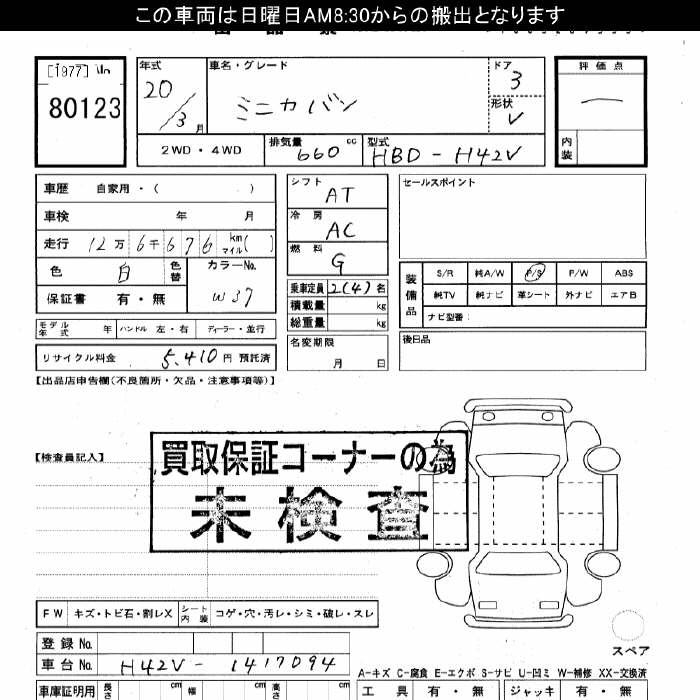 この車両は日曜日AM8:30からの搬出となります
[1977]
80123
年式 車名・グレード ドア 評価点
20/3月 ミニカバン 3 形状 V 一
2WD・4WD 排気量 660 cc 型式 HBD-H42V 内装
車歴 自家用・( )
車検 年 月
走行 12万6千676 km マイル( )
色 白 色替 カラーNo. W37
保証書 有・無
モデル年式 年 ハンドル 左・右 ディーラー・並行
リサイクル料金 5,410円 預託済
シフト AT
冷房 AC
燃料 G
乗車定員 2(4)名
積載量 kg
総重量 kg
名変期限 月 日
セールスポイント
装備品 S/R 純A/W P/S P/W ABS
純TV 純ナビ 革シート 外ナビ エアB
ナビ型番:
後日品
【出品店申告欄(不良箇所・欠品・注意事項等)】
【検査員記入】
買取保証コーナーの為
未検査
FW キズ・トビ石・割レX シート内装 コゲ・穴・汚レ・シミ・破レ・スレ
スペア
登録No.
車台No. H42V-1417094
A-キズ C-腐食 E-エクボ S-サビ U-凹ミ W-補修 XX-交換済
車庫証明用 長さ cm 幅 cm 高さ cm
工具 有・無 ジャッキ 有・無